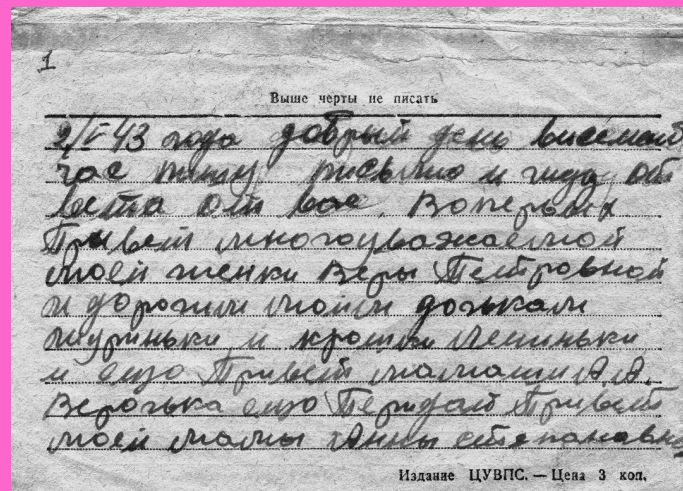 1
Выше черты не писать
2/I-43 года добрый день
час пишу письмо и жду от
вета от вас. Воперьвых
Привет многоуважаемой
моей женки Веры Петровной
и дорогим моим дочькам
Шуриньки и крошки Лениньки
и ещо Привет мамаши А.А.
Верочька ещо Передай Привет
моей мамы Анны степанавны
Издание ЦУВПС. — Цена 3 коп.